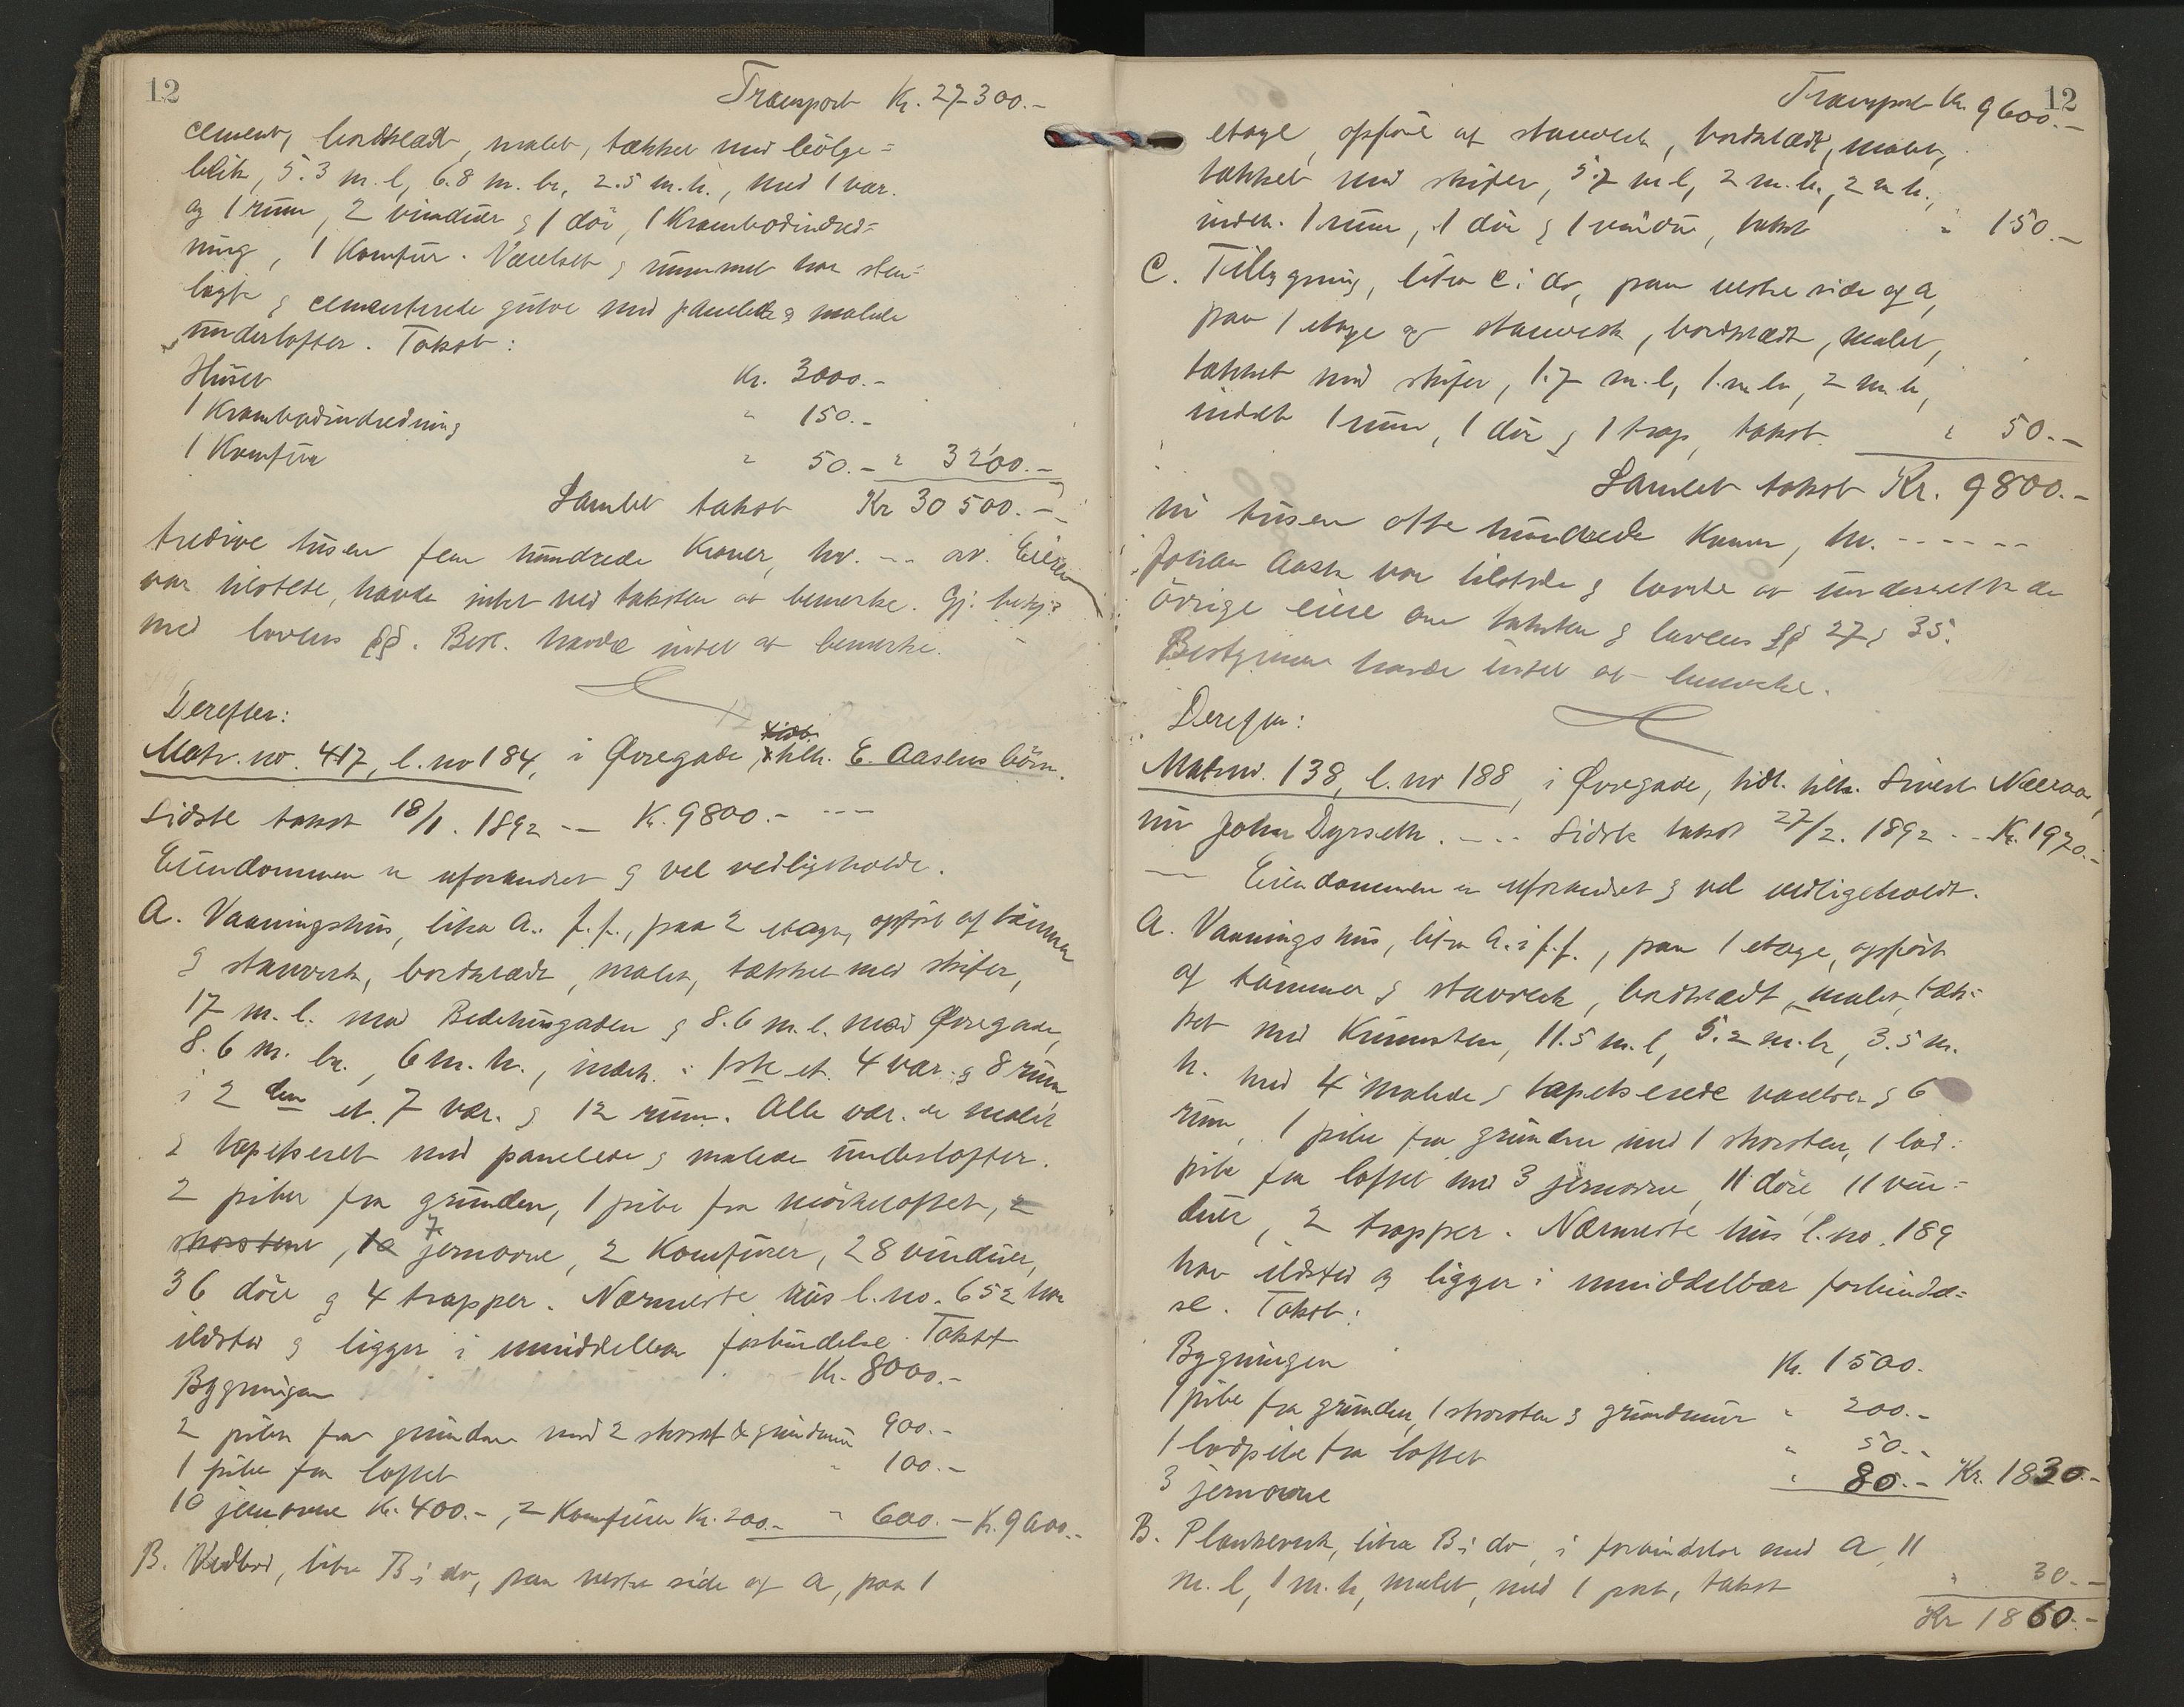 12
Transport Kr. 27300.-
cement, bordklædt, malet, tækket med bölge=
blik, 5.3 m. l, 6.8 m. br, 2.5 m. h., med 1 vær.
og 1 rum, 2 vinduer & 1 dör, 1 Krambodindred=
ning, 1 Komfur. Værelset & rummet har sten=
lagte & cementerede gulve med panelede & malede
underlofter. Takst:
Huset Kr. 3000.-
1 Krambodindredning " 150.-
1 Komfur " 50.- " 3200.-
Samlet takst Kr 30500.-
tredive tusen fem hundrede Kroner, hv. --- av. Eieren
var tilstede, havde intet ved taksten at bemerke. Gj. bekj.
med lovens §§. Best. havde intet at bemerke.
Derefter:
Matr. no. 417, l. no 184, i Øvregade, tilh. E. Aasens börn.
Sidste takst 18/1. 1892 -- Kr. 9800.- ---
Eiendommen er uforandret & vel vedligeholdt.
A. Vaaningshus, litra A. i f. f., paa 2 etager, opfört af tömmer
& stavverk, bordklædt, malet, tækket med skifer,
17 m. l. mod Bedehusgaden & 8.6 m. l. mod Øvregade,
8.6 m. br., 6 m. h., indr. i 1ste et. 4 vær. & 8 rum
i 2den et. 7 vær. & 12 rum. Alle vær. er malet
& tapetseret med panelede & malede underlofter.
2 piber fra grunden, 1 pibe fra mörkeloftet, 2
skorstene, 10 7 jernovne, 2 Komfurer, 28 vinduer,
36 döre & 4 trapper. Nærmeste hus l. no. 652 har
ildsted & ligger i umiddelbar forbindelse. Takst
Bygningen Kr. 8000.-
2 piber fra grunden med 2 skorst. & grundmur 900.-
1 pibe fra loftet " 100.-
10 jernovne Kr. 400.-, 2 Komfurer Kr. 200.- " 600.- Kr. 9600.-
B. Vedbod, litra B i do, paa vestre side af A, paa 1
12
Transport Kr. 9600.-
etage, opfört af stavverk, bordklædt, malet,
tækket med skifer, 5.7 m l, 2 m. br., 2 m h.,
indr. 1 rum, 1 dör & 1 vindu, takst " 150.-
C. Tilbygning, litra C i do, paa vestre side af A,
paa 1 etage af stavverk, bordklædt, malet,
tækket med skifer, 1.7 m. l, 1. m br, 2 m h,
indr. 1 rum, 1 dör & 1 trap, takst. " 50.-
Samlet takst Kr. 9800.-
ni tusen otte hundrede Kroner, hv. ------
Johan Aasen var tilstede & lovede at underrette de
övrige eiere om taksten & lovens §§ 27 & 35.
Bestyreren havde intet at bemerke.
Derefter:
Matr no. 138, l. no 188, i Øvregade, tidl. tilh. Sivert Nærøe,
nu Johan Dyrseth. --- Sidste takst 27/2. 1892 -- Kr. 1970.-
Eiendommen er uforandret & vel vedligeholdt.
A. Vaaningshus, litra A. i f. f., paa 1 etage, opfört
af tömmer & stavverk, bordklædt, malet, tæk=
ket med Krumsten, 11.5 m. l, 5.2 m. br, 3.5 m.
h. med 4 malede & tapetserede værelser & 6
rum, 1 pibe fra grunden med 1 skorsten, 1 lod=
pibe fra loftet med 3 jernovne, 11 döre, 11 vin=
duer, 2 trapper. Nærmeste hus l. no. 189
har ildsted og ligger i umiddelbar forbindel=
se. Takst:
Bygningen Kr. 1500.
1 pibe fra grunden, 1 skorsten & grundmur " 200.-
1 lodpibe fra loftet " 50.-
3 jernovne " 80.- Kr. 1830.-
B. Plankeverk, litra B i do, i forbindelse med A, 11
m. l, 1 m. h, malet, med 1 port, takst " 30.-
Kr 1860.-